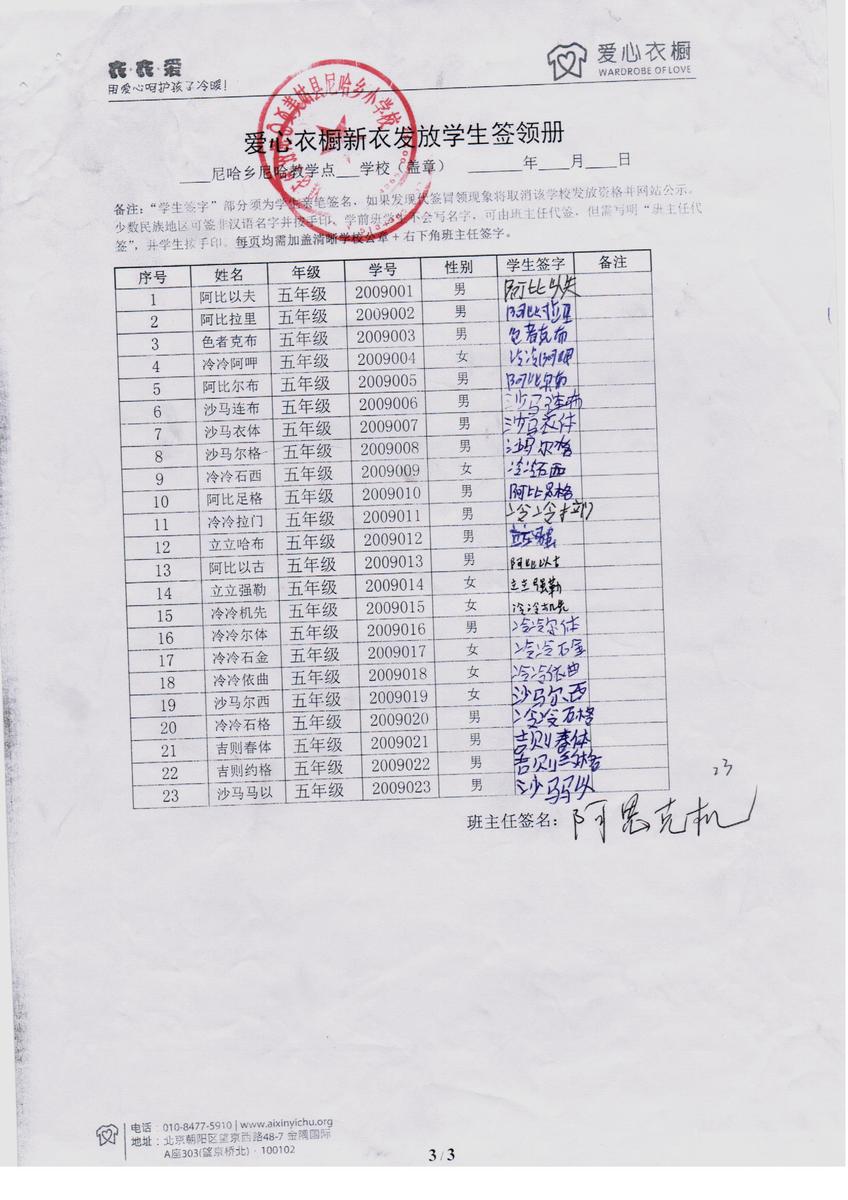 衣·衣·爱
用爱心呵护孩子冷暖！
爱心衣橱
WARDROBE OF LOVE
美姑县尼哈乡小学校
爱心衣橱新衣发放学生签领册
____尼哈乡尼哈教学点___学校（盖章） ______年____月____日
备注：“学生签字”部分须为学生亲笔签名，如果发现代签冒领现象将取消该学校发放资格并网站公示。
少数民族地区可签非汉语名字并按手印、学前班学生不会写名字，可由班主任代签，但需写明“班主任代
签”，并学生按手印。每页均需加盖清晰学校公章+右下角班主任签字。
序号 姓名 年级 学号 性别 学生签字 备注
1 阿比以夫 五年级 2009001 男 阿比以夫
2 阿比拉里 五年级 2009002 男 阿比拉里
3 色者克布 五年级 2009003 男 色者克布
4 冷冷阿呷 五年级 2009004 女 冷冷阿呷
5 阿比尔布 五年级 2009005 男 阿比尔布
6 沙马连布 五年级 2009006 男 沙马连布
7 沙马衣体 五年级 2009007 男 沙马衣体
8 沙马尔格 五年级 2009008 男 沙马尔格
9 冷冷石西 五年级 2009009 女 冷冷石西
10 阿比足格 五年级 2009010 男 阿比足格
11 冷冷拉门 五年级 2009011 男 冷冷拉门
12 立立哈布 五年级 2009012 男
13 阿比以古 五年级 2009013 男 阿比以古
14 立立强勒 五年级 2009014 女 立立强勒
15 冷冷机先 五年级 2009015 女 冷冷机先
16 冷冷尔体 五年级 2009016 男 冷冷尔体
17 冷冷石金 五年级 2009017 女 冷冷石金
18 冷冷依曲 五年级 2009018 女 冷冷依曲
19 沙马尔西 五年级 2009019 女 沙马尔西
20 冷冷石格 五年级 2009020 男 冷冷石格
21 吉则春体 五年级 2009021 男 吉则春体
22 吉则约格 五年级 2009022 男 吉则约格
23 沙马马以 五年级 2009023 男 沙马马以
23
班主任签名：阿恩克机
电话：010-8477-5910 | www.aixinyichu.org
地址：北京朝阳区望京西路48-7 金隅国际
A座303(望京桥北)·100102
3 / 3